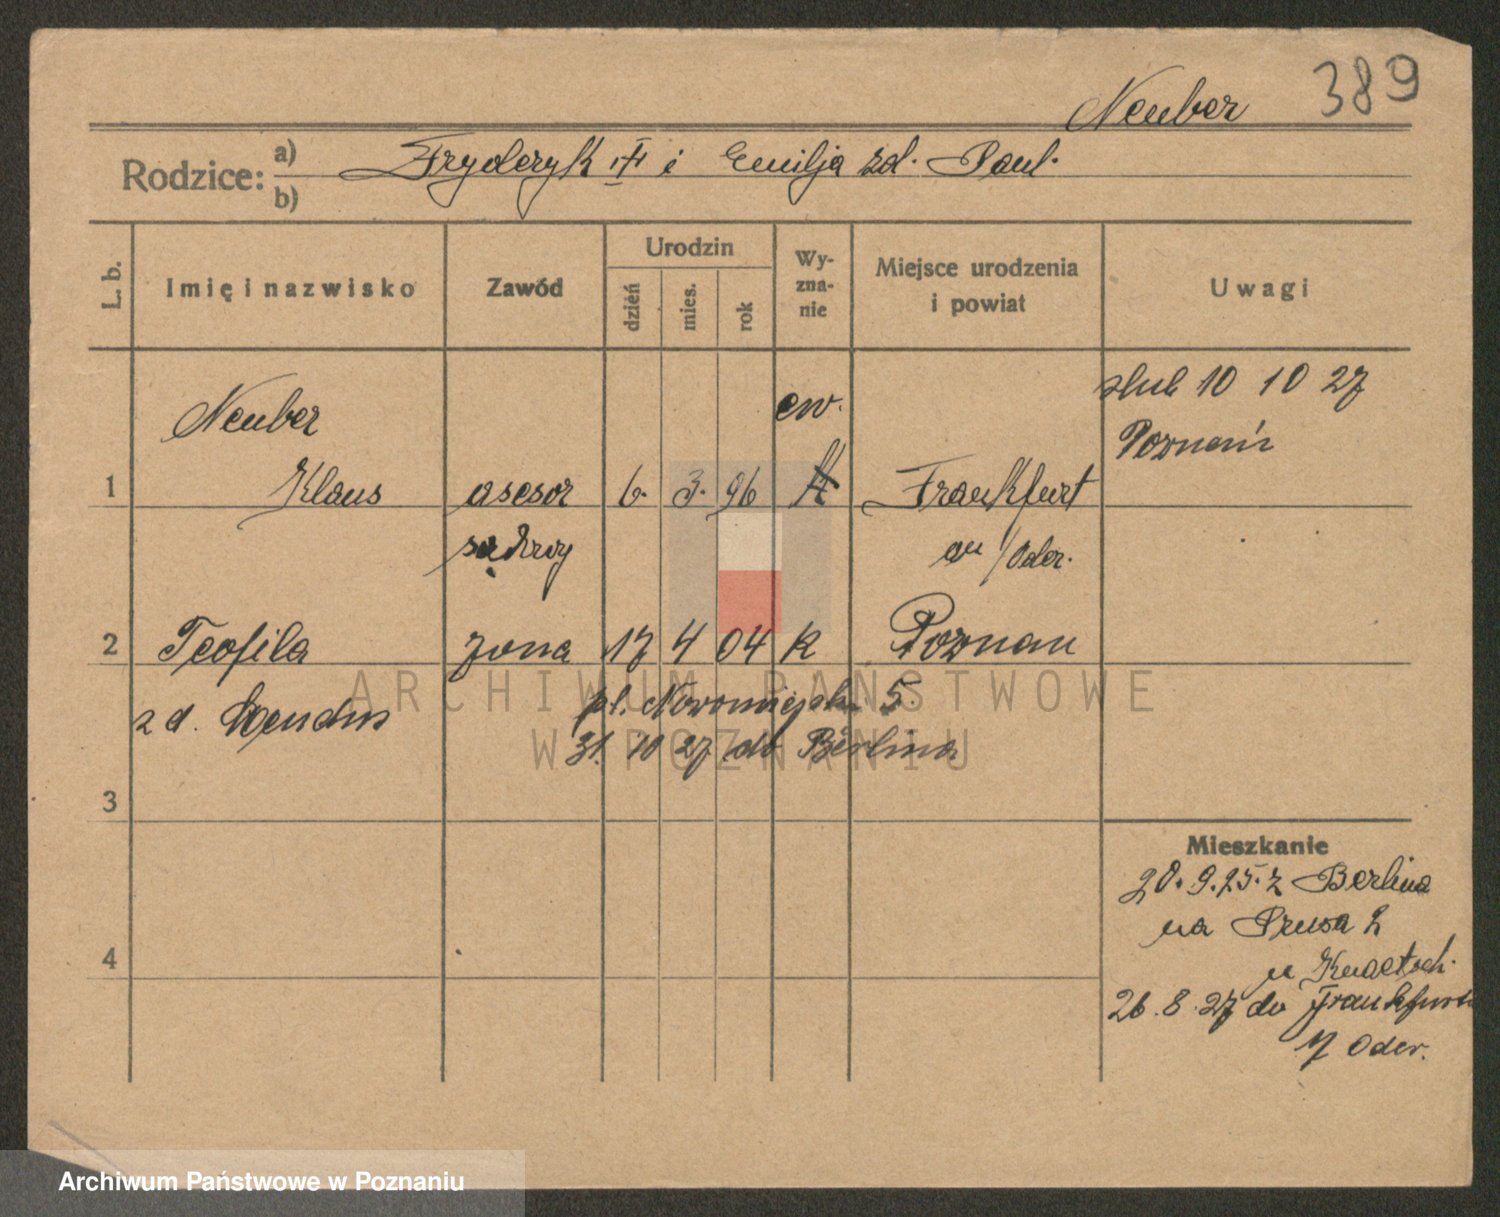 389
Neuber
Rodzice: a) Fryderyk i Emilja zd. Paul.
b)
L. b. Imię i nazwisko Zawód Urodzin dzień mies. rok Wyznanie Miejsce urodzenia i powiat Uwagi
ślub 10 10 27
Poznań
Neuber ew.
1 Klaus asesor 6. 3. 96 Frankfurt
sądowy an/Oder.
2 Teofila żona 17 4 04 k Poznan
z d. pl. Nowomiejski 5.
31. 10 27 do Berlina
3
Mieszkanie
20.9.25. z Berlina
na Prusa 2
u
4
26.8.27 do Frankfurtu
Oder.
ARCHIWUM PAŃSTWOWE
W POZNANIU
Archiwum Państwowe w Poznaniu